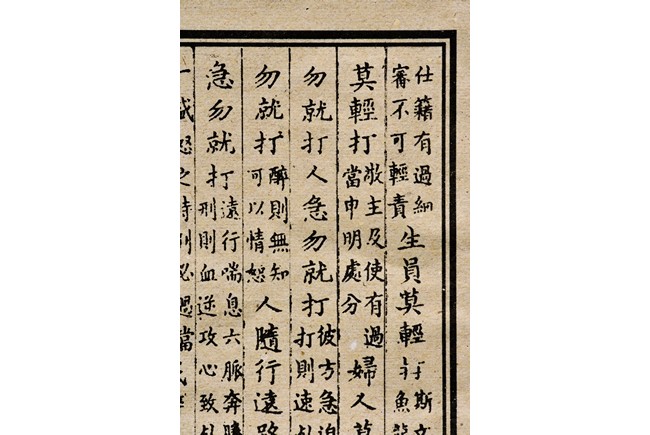 仕籍有過細
審不可輕責
生員莫輕打
斯文
魚龍
莫輕打
敬主及使有過
當申明處分
婦人莫
勿就打人急勿就打
彼方急迫
打則速
勿就打
醉則無知
可以情恕
人隨行遠路
急勿就打
遠行喘息六脈奔騰
刑則血逆攻心致
盛怒之時刑必過當